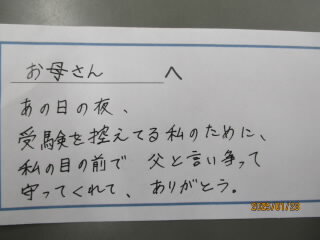 お母さん へ
あの日の夜、
受験を控えてる私のために、
私の目の前で 父と言い争って
守ってくれて、ありがとう。